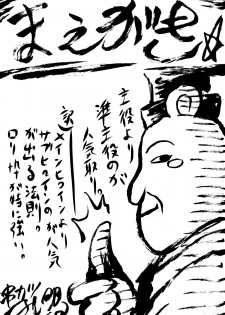 まえがき☆
主役より
準主役のが
人気取り。
訳
メインヒロインより
サブヒロインのが人気
が出る法則。
ロリキャラが特に強い。